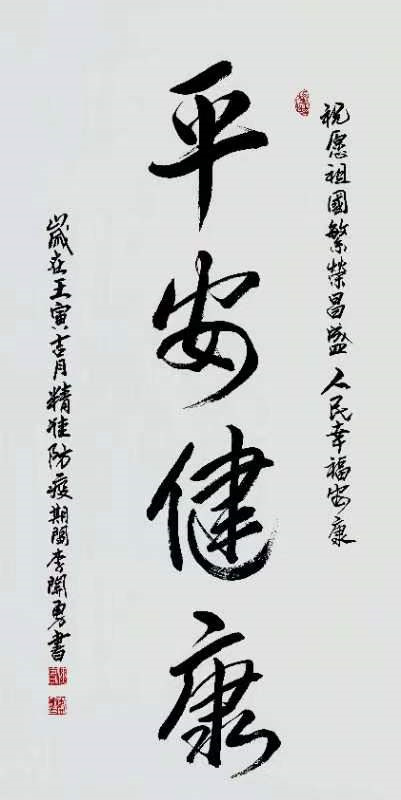 祝愿祖國繁榮昌盛 人民幸福安康
平安健康
歲在壬寅吉月精准防疫期間李開勇書